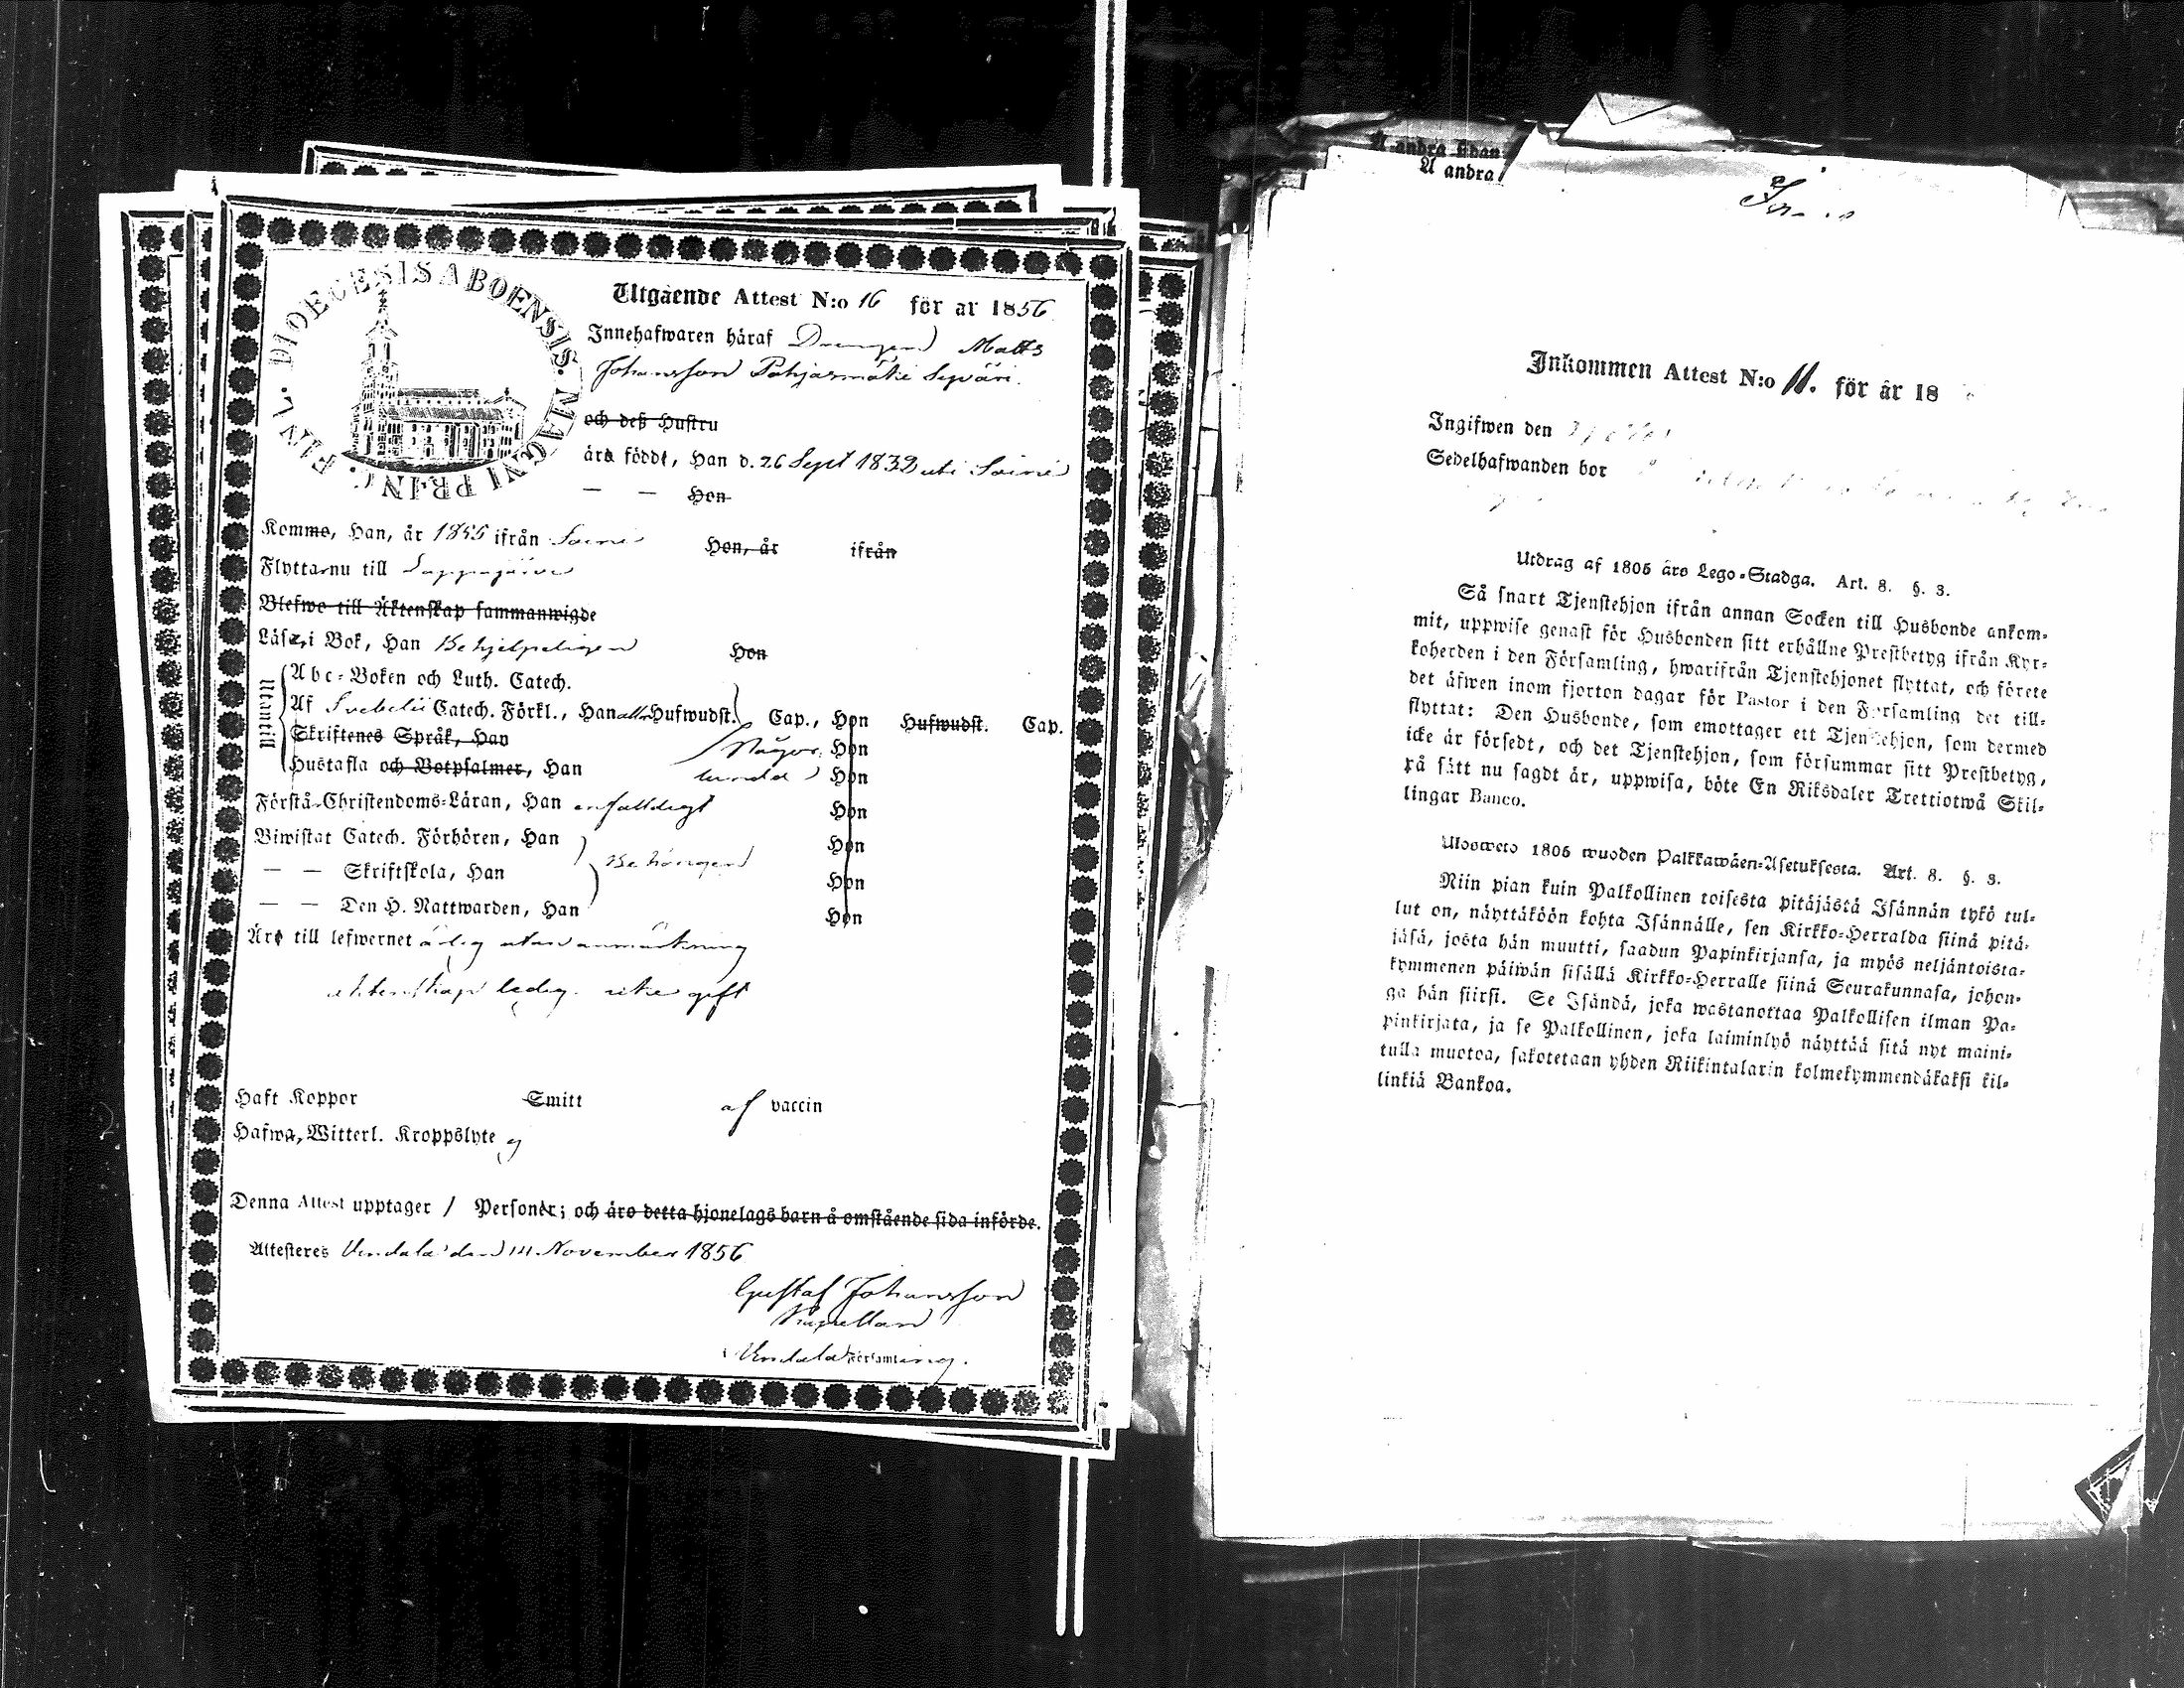 DIOECESIS ABOENSIS. MAGNI PRINC. FINL.
Utgående Attest N:o 16 för år 1856
Innehafwaren häraf Drengen Matts
Johansson Pohjasmäki Sepäri.
och deß Hustru
äro född, Han d. 26 Sept 1832 uti Soini
— — Hon
Komme, Han, år 1855 ifrån Soini Hon, år ifrån
Flyttar nu till Lappajärvi
Blefwe till Äktenskap sammanwigde
Läser i Bok, Han Behjelpeligen Hon
Utantill
Abc-Boken och Luth. Catech.
Af Svebelii Catech. Förkl., Han alla Hufwudst. Cap., Hon Hufwudst. Cap.
Skriftenes Språk, Han Någor Hon
Hustafla och Botpsalmer, Han lunda Hon
Förstå Christendoms-Läran, Han enfaldigt Hon
Biwistat Catech. Förhören, Han Hon
— — Skriftskola, Han Behörigen Hon
— — Den H. Nattwarden, Han Hon
Äro till lefwernet ärlig utan anmärkning
äktenskap ledig. icke gift
Haft Koppor Smitt af vaccin
Hafwa, Witterl. Kroppslyte ej
Denna Attest upptager / Personer; och äro detta hjonelags barn å omstående sida införde.
Attesteres Vindala den 14 November 1856
Gustaf Johansson
Kapellan
Vindala församling.
Å andra sidan
Å andra
Inkommen Attest N:o 11. för år 18
Ingifwen den
Sedelhafwanden bor
Utdrag af 1805 års Lego-Stadga. Art. 8. §. 3.
Så snart Tjenstehjon ifrån annan Socken till Husbonde ankom-
mit, uppwise genast för Husbonden sitt erhållne Prestbetyg ifrån Kyr-
koherden i den Församling, hwarifrån Tjenstehjonet flyttat, och förete
det äfwen inom fjorton dagar för Pastor i den Församling det till-
flyttat: Den Husbonde, som emottager ett Tjenstehjon, som dermed
icke är försedt, och det Tjenstehjon, som försummar sitt Prestbetyg,
på sätt nu sagdt är, uppwisa, böte En Riksdaler Trettiotwå Skil-
lingar Banco.
Ulosweto 1805 wuoden Palkkawäen-Asetuksesta. Art. 8. §. 3.
Niin pian kuin Palkollinen toisesta pitäjästä Isännän tykö tul-
lut on, näyttäköön kohta Isännälle, sen Kirkko-Herralda siinä pitä-
jäsä, josta hän muutti, saadun Papinkirjansa, ja myös neljäntoista-
kymmenen päiwän sisällä Kirkko-Herralle siinä Seurakunnasa, johon-
ga hän siirsi. Se Isändä, joka wastanottaa Palkollisen ilman Pa-
pinkirjata, ja se Palkollinen, joka laiminlyö näyttää sitä nyt maini-
tulla muotoa, sakotetaan yhden Riikintalarin kolmekymmendäkaksi kil-
linkiä Bankoa.